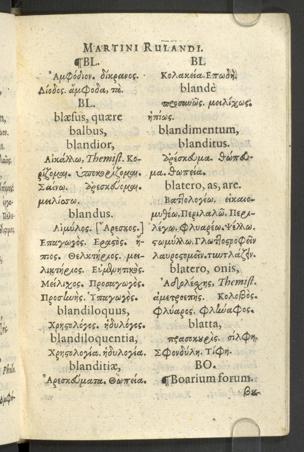 MARTINI RULANDI.
¶BL.
Ἀμφόδιον. δίκραιος.
Δίοδος. ἄμφοδα, πὲ.
BL.
blæsus, quære
balbus,
blandior,
Αἰκάλλω, Themist. Κο-
ρίζομαι. Ὑποκορίζομαι.
Σαίνω. ἀρέσκομαι.
μειλίσσω.
blandus.
Αἱμύλος. [Ἄρεσκος.]
Ἐπαγωγὸς. Ἐρασὴς. ἤ-
πιος. Θελκτήριος. μει-
λικτήριος.
Μείλιχος. Προσαγωγὸς.
Προσηνής. Ὑπαγωγὸς.
blandiloquus,
Χρηστολόγος. ἡδυλόγος.
blandiloquentia,
Χρηστολογία. ἡδυλογία.
blanditiæ,
Ἀρεσκεύματα. Θωπεία.
BL
Κολακεία. Ἐπωδὴ.
blandè
προσηνῶς. μειλίχως.
ἠπίως.
blandimentum,
blanditus.
ἀρέσκευμα. θώπευ-
μα. θωπεία.
blatero, as, are.
Βαττολογέω. εἰκαιο-
μυθέω. Περιλαλῶ. Περι-
λέγω. Φλυαρέω.
στωμύλλω.
blatero, onis,
Themist.
ἀμετροεπής. Κολοβὸς.
Φλύαρος.
blatta,
σίλφη.
Σφονδύλη. Τίφη.
BO.
¶Boarium forum.